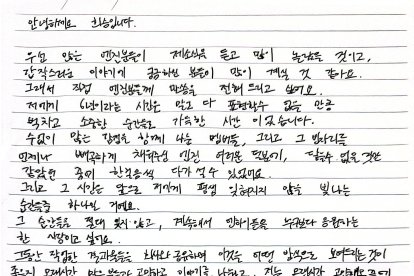 안녕하세요 희승입니다.
우선 많은 엔진분들이 제소식을 듣고 많이 놀랐을 것이고,
갑작스러운 이야기에 궁금하신 분들이 많이 계실 것 같아요.
그래서 직접 엔진분들께 말씀을 전해 드리고 싶어요.
저에게 6년이라는 시간은 말로 다 표현할수 없을 만큼
벅차고 소중한 순간들로 가득한 시간 이었습니다.
수없이 많은 감정을 함께 나눈 멤버들, 그리고 그 빈자리를
언제나 빼곡하게 채워주신 엔진 여러분 덕분에, 닿을수 없을 것만
같았던 꿈에 한걸음씩 다가설 수 있었어요.
그리고 그 시간은 앞으로 저에게 평생 잊혀지지 않을 빛나는
순간들중 하나일 거에요.
그 순간들을 절대 잊지 않고, 계속해서 엔하이픈을 누구보다 응원하는
한 사람이고 싶어요.
그동안 작업한 결과물들을 회사와 공유하며 이것을 어떤 방식으로 보여드리는 것이
좋을지 오랜시간 많은 분들과 고민하고 이야기를 나눴고, 저는 오랜시간